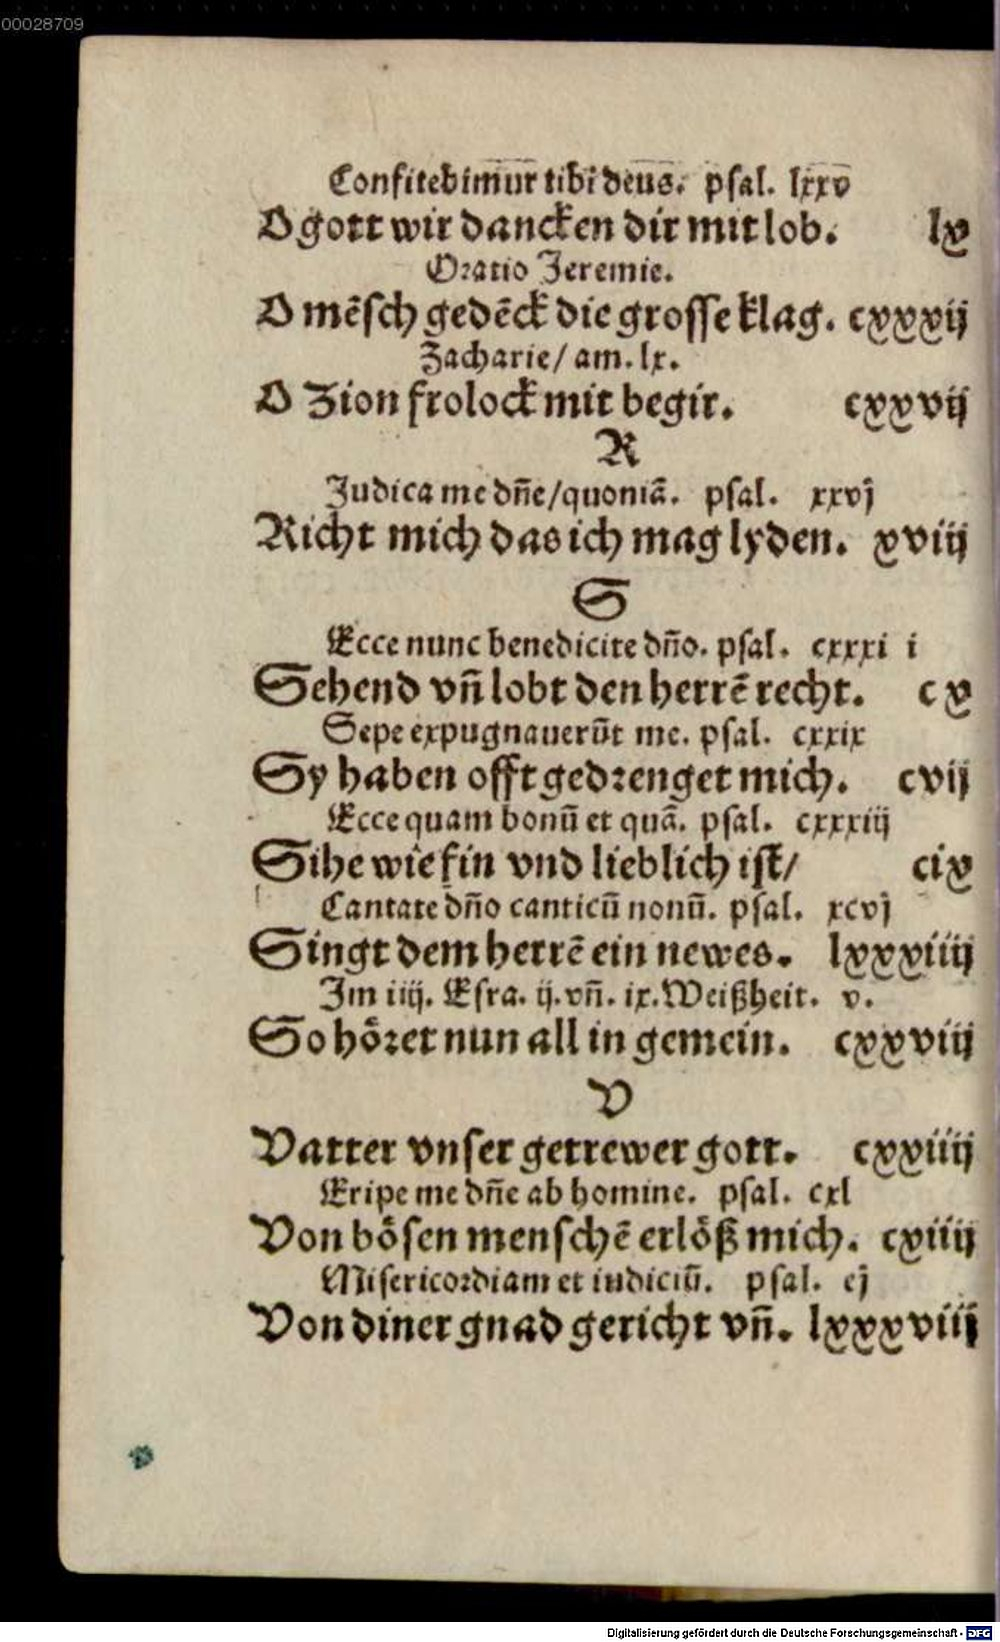 00028709
Confitebimur tibi deus. psal. lxxv
O gott wir dancken dir mit lob. lx
Oratio Jeremie.
O mẽsch gedẽck die grosse klag. cxxxij
Zacharie/ am. ix.
O Zion frolock mit begir. cxxvij
R
Judica me dñe/quoniã. psal. xxvj
Richt mich das ich mag lyden. xviij
S
Ecce nunc benedicite dño. psal. cxxxi i
Sehend vñ lobt den herrẽ recht. c x
Sepe expugnauerũt me. psal. cxxix
Sy haben offt gedrenget mich. cvij
Ecce quam bonũ et quã. psal. cxxxiij
Sihe wie fin vnd lieblich ist/ cix
Cantate dño canticũ nonũ. psal. xcvj
Singt dem herrẽ ein newes. lxxxiiij
Im iiij. Esra. ij. vñ. ix. Weißheit. v.
So hoͤret nun all in gemein. cxxviij
V
Vatter vnser getrewer gott. cxxiiij
Eripe me dñe ab homine. psal. cxl
Von boͤsen menschẽ erloͤß mich. cxiiij
Misericordiam et iudiciũ. psal. cj
Von diner gnad gericht vñ. lxxxviij
Digitalisierung gefördert durch die Deutsche Forschungsgemeinschaft - DFG